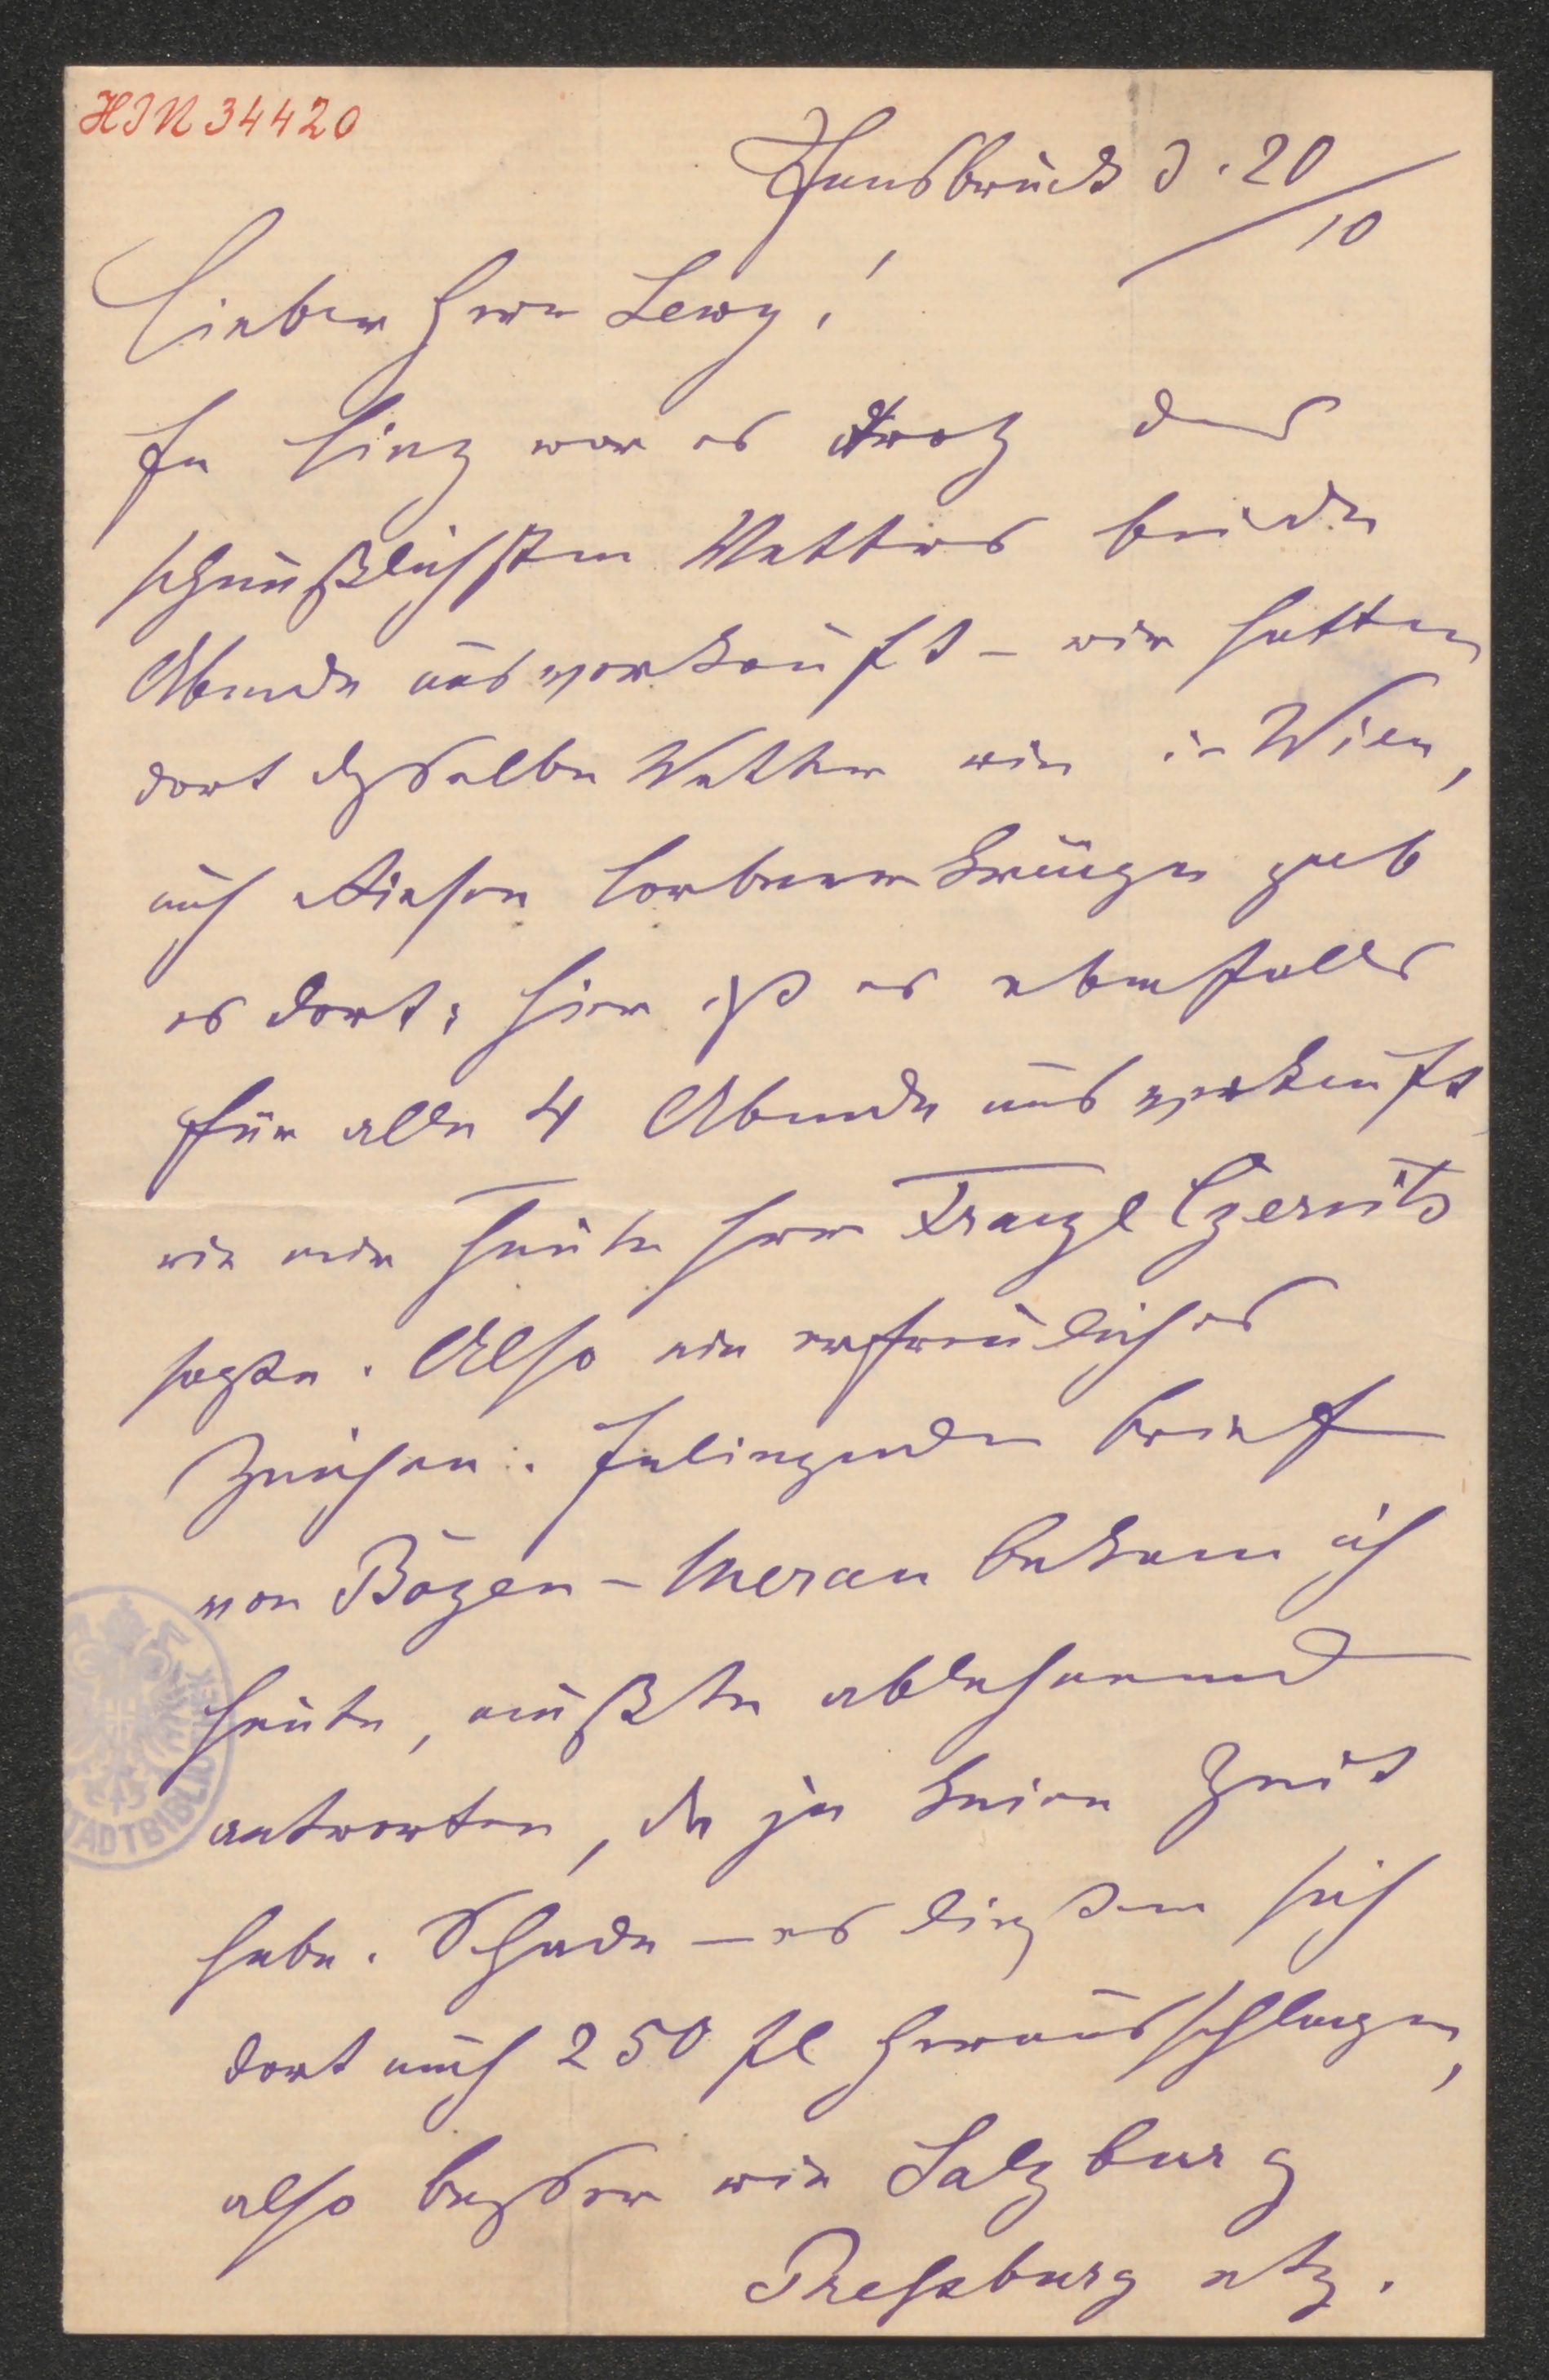 HIN 34420
Innsbruck d. 20/10
Lieber Herr Lewy!
In Linz war es trotz des
scheußlichsten Wetters beide
Abende ausverkauft – wir hatten
dort dasselbe Wetter wie in Wien,
auch Riesen Lorbeerkränze gab
es dort; hier ist es ebenfalls
für alle 4 Abende ausverkauft
wie mir heute Herr Franzl
sagte. Also ein erfreuliches
Zeichen. Inliegenden Brief
von Bozen – Meran bekam ich
heute, mußte ablehnend
antworten, da ja keine Zeit
habe. Schade – es ließen sich
dort auch 250 fl herausschlagen,
also besser wie Salzburg
Pressburg etz.
STADTBIBLIO